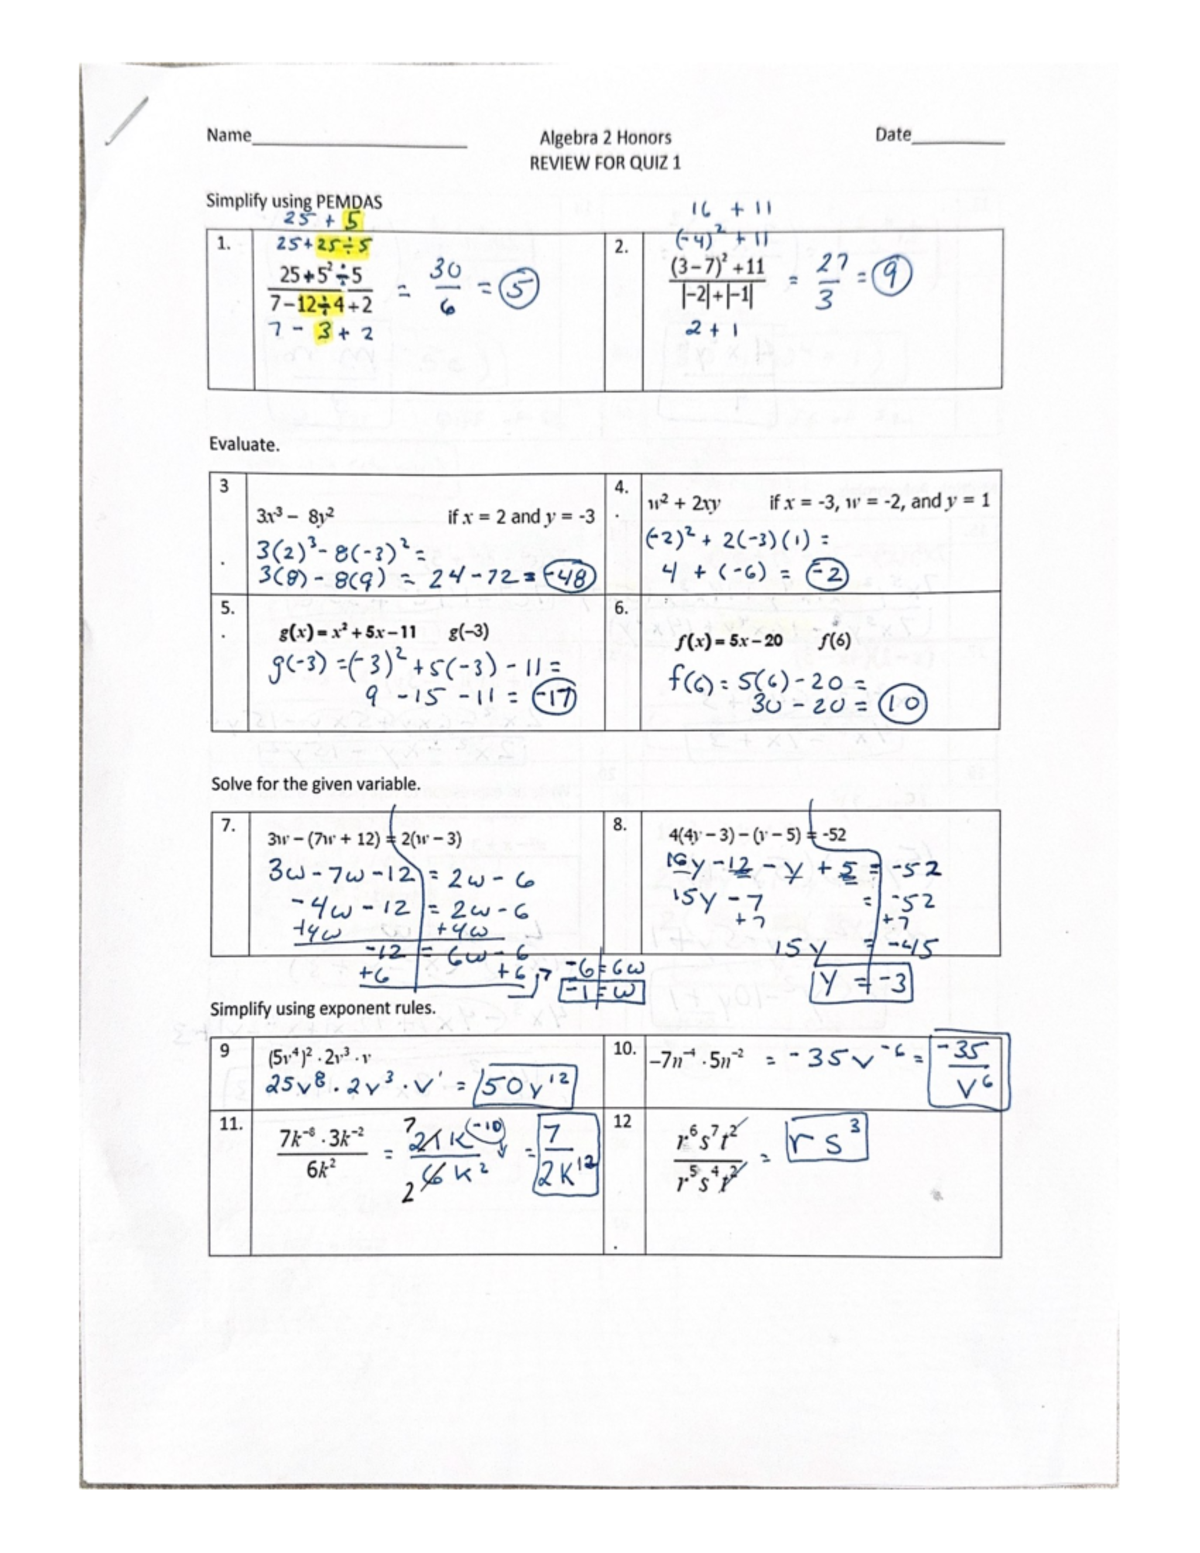 Name Algebra 2 Honors Date
REVIEW FOR QUIZ 1
Simplify using PEMDAS
1.
25 + 5
25 + 25 ÷ 5
25 + 5² ÷ 5 / 7 – 12 ÷ 4 + 2 = 30 / 6 = 5
7 - 3 + 2
2.
16 + 11
(-4)² + 11
(3 – 7)² + 11 / |–2| + |–1| = 27 / 3 = 9
2 + 1
Evaluate.
3
3x³ – 8y² if x = 2 and y = -3
3(2)³ - 8(-3)² =
3(8) - 8(9) = 24 - 72 = -48
4.
w² + 2xy if x = -3, w = -2, and y = 1
(-2)² + 2(-3)(1) =
4 + (-6) = -2
5.
g(x) = x² + 5x – 11 g(–3)
g(-3) = (-3)² + 5(-3) - 11 =
9 - 15 - 11 = -17
6.
f(x) = 5x – 20 f(6)
f(6) = 5(6) - 20 =
30 - 20 = 10
Solve for the given variable.
7.
3w – (7w + 12) = 2(w – 3)
3w - 7w - 12 = 2w - 6
-4w - 12 = 2w - 6
+4w +4w
-12 = 6w - 6
+6 +6
-6 = 6w
-1 = w
8.
4(4y – 3) – (y – 5) = -52
16y - 12 - y + 5 = -52
15y - 7 = -52
+7 +7
15y = -45
y = -3
Simplify using exponent rules.
9
(5v⁴)² · 2v³ · v
25v⁸ · 2v³ · v¹ = 50v¹²
10.
–7n⁻⁴ · 5n⁻² = -35v⁻⁶ = -35 / v⁶
11.
7k⁻⁸ · 3k⁻² / 6k² = 7 21k⁻¹⁰ / 2 6k² = 7 / 2k¹²
12
r⁶s⁷t² / r⁵s⁴t² = rs³